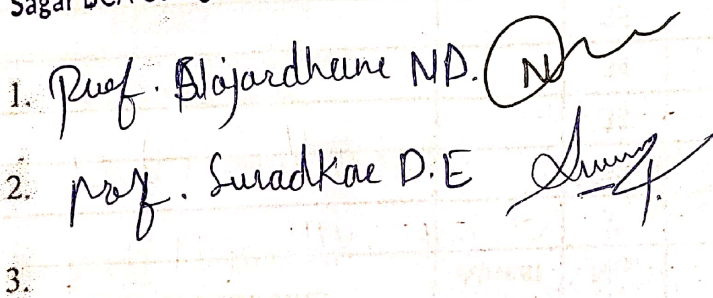 Sagar
1. Prof. Alajardhane ND.
2. Prof. Suradkar D.E
3.